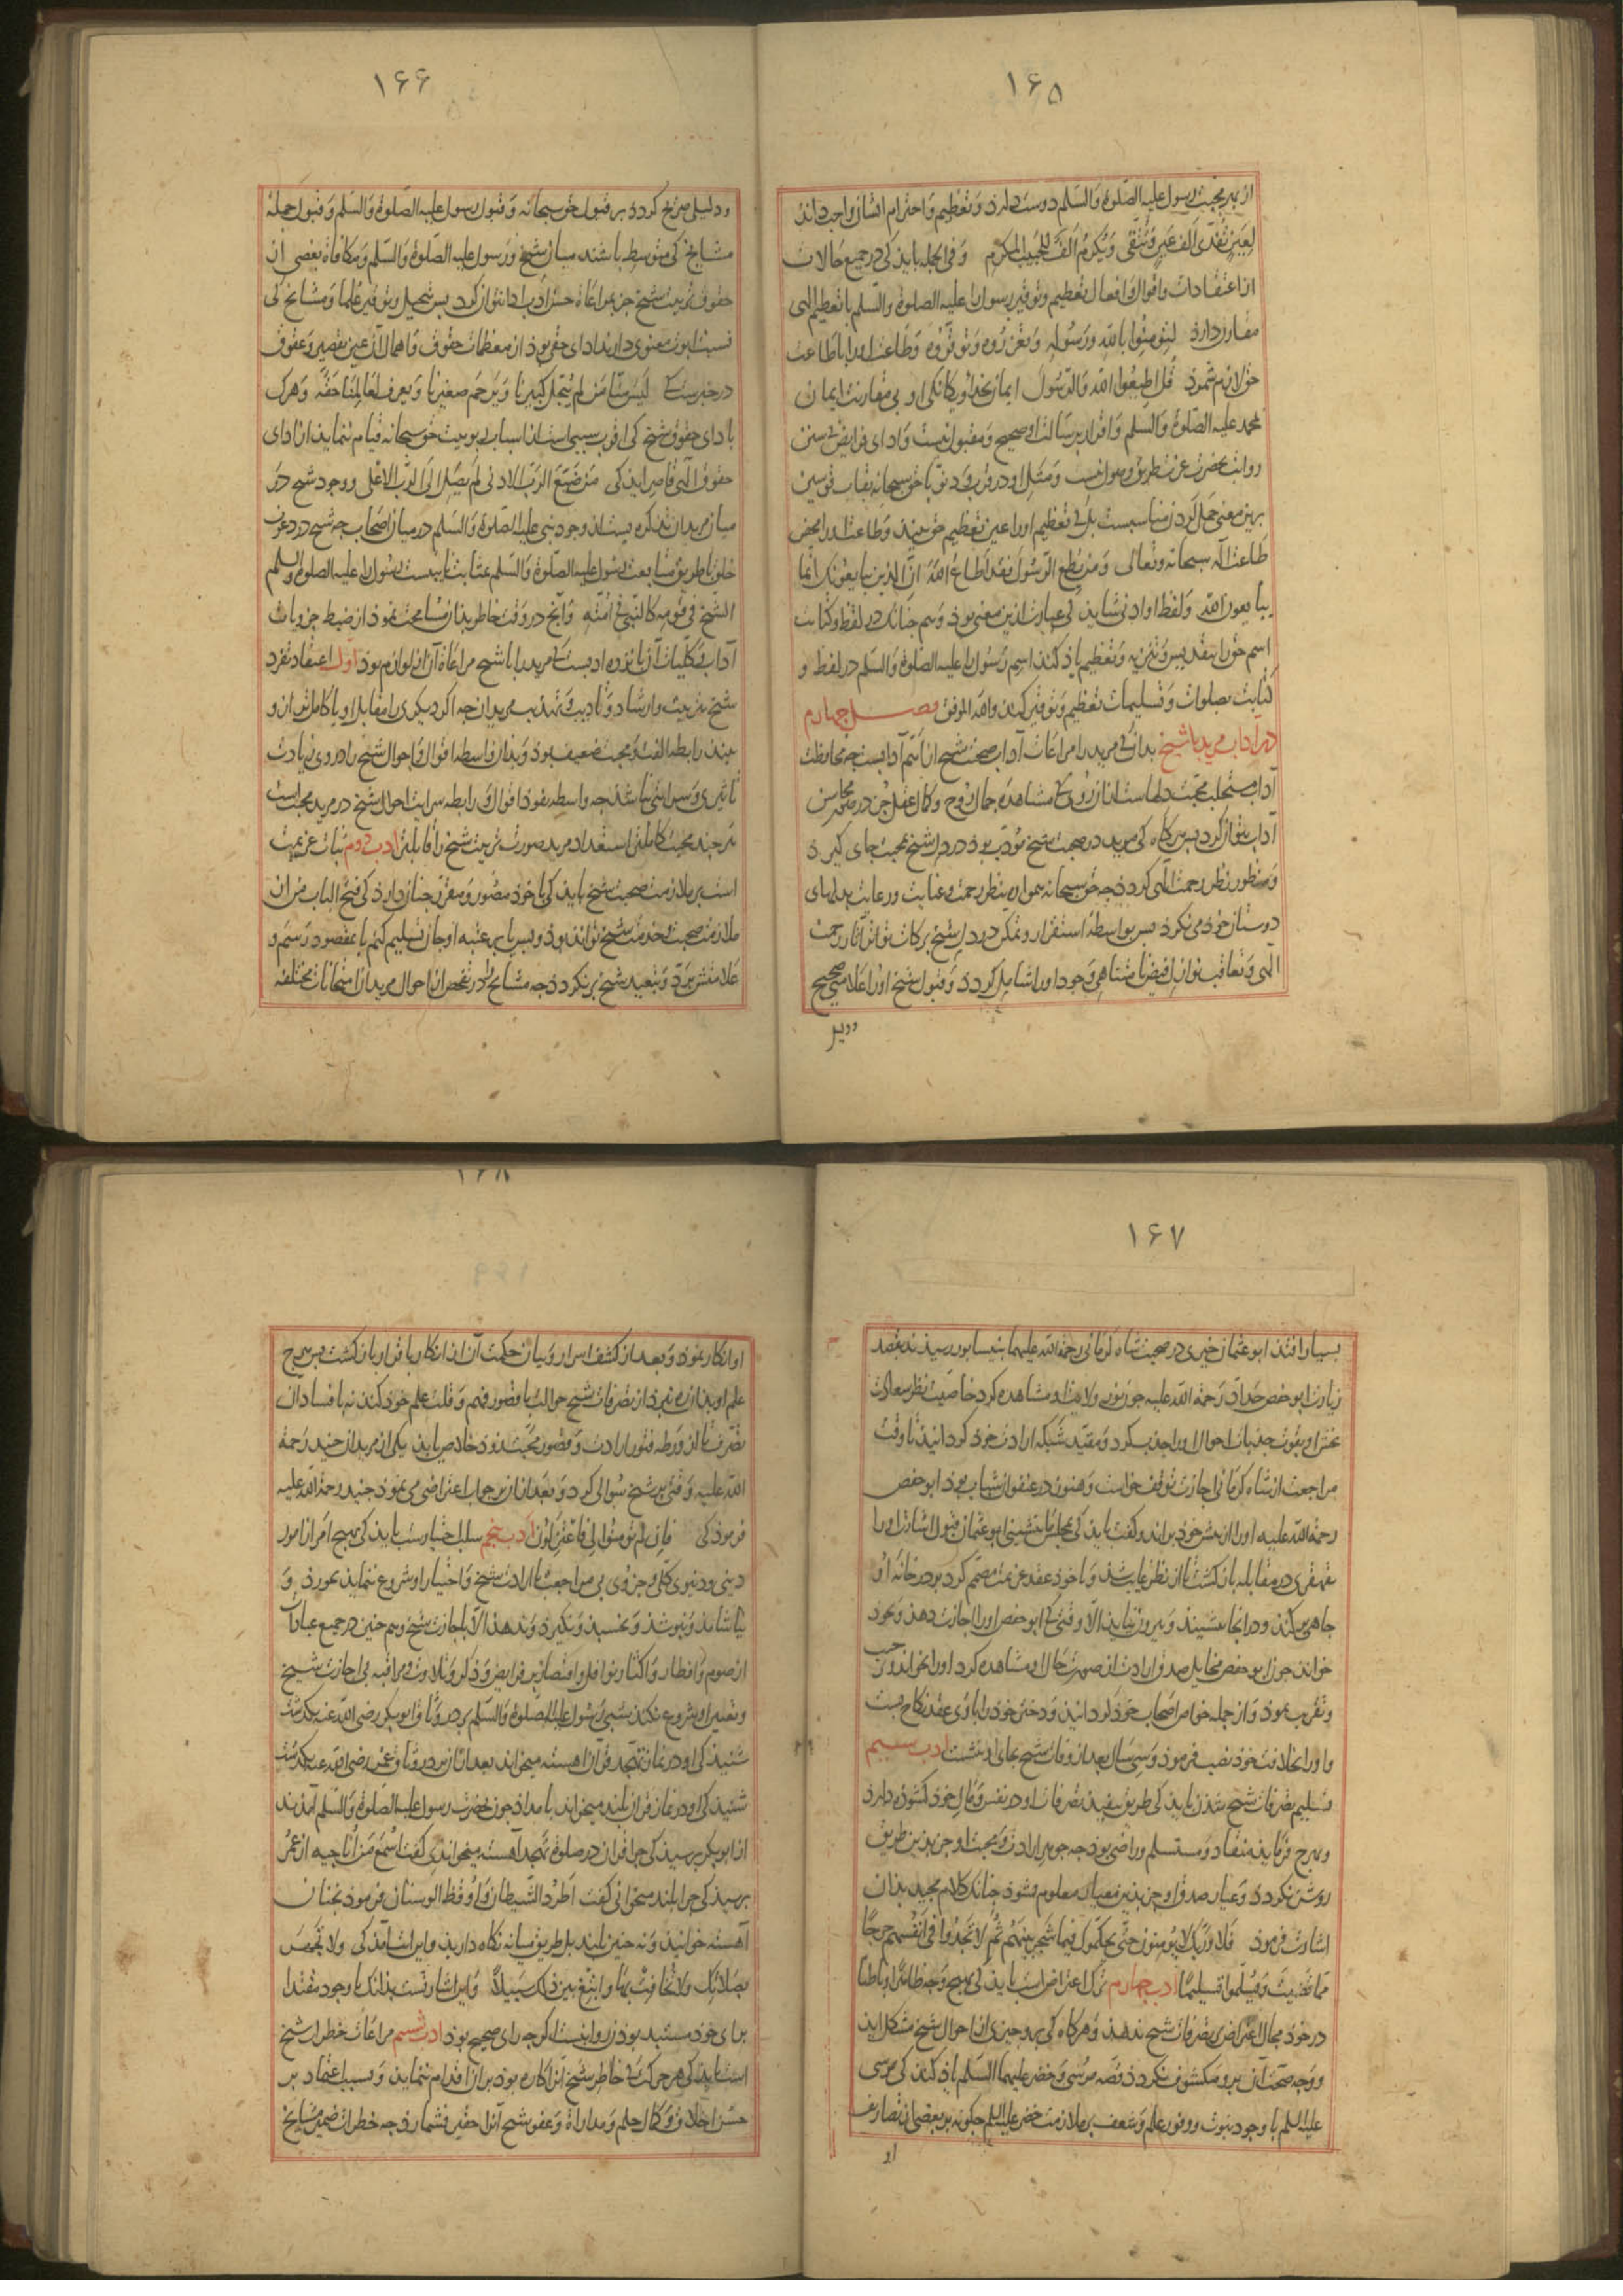 ۱۶۵
از بهر محبت رسول علیه الصلوة والسلم دوست دارد و تعظیم و احترام ایشان واجب داند
لعین تفدی الف عین وتتقی ویکرم الف للحبیب المکرم و فی الجمله باید کی در جمیع حالات
از اعتقادات و اقوال و افعال تعظیم و توقیر رسول را علیه الصلوة والسلم با تعظیم الهی
مقارن دارد لیؤمنوا بالله ورسوله وتعزروه وتوقروه و طاعت او را با طاعت
حق لازم شمرد قل اطیعوا الله والرسول ایمان بخدا و یگانگی او بی مقارنت ایمان
محمد علیه الصلوة والسلم و اقرار برسالت او صحیح و مقبول نیست و ادای فرایض بی سنن
رواتب بحضرت عزت طریق وصول نیست و مثل او در قرب و دنو با حق سبحانه بقاب قوسین
برین معنی حمل کردن مناسبست بل کی تعظیم او را عین تعظیم حق بیند و طاعت او را محض
طاعت اله سبحانه وتعالی ومن یطع الرسول فقد اطاع الله ان الذین یبایعونک انما
یبایعون الله ولفظ او ادنی شاید کی عبارت ازین معنی بود و هم چنانک در لفظ و کتابت
اسم حق را بتقدیس و تنزیه و تعظیم یاد کنند اسم رسول را علیه الصلوة والسلم در لفظ و
کتابت بصلوات و تسلیمات تعظیم و توقیر کنند والله الموفق فصل چهارم
در آداب مرید با شیخ بدانک مرید را مراعات آداب صحبت شیخ از اهم آدابست چه محافظت
آداب مستجلب محبت دلهاست از آن روی کی مشاهده جمال روح و کمال عقل جز در صور محاسن
آداب نتوان کرد پس هرگاه کی مرید در صحبت شیخ مؤدب بود در دل شیخ بمحبت جای گیرد
و منظور نظر رحمت الهی گردد چه حق سبحانه همواره بنظر رحمت و عنایت و رعایت بدلهای
دوستان خود می نگرد پس بواسطه استقرار و تمکن در دل شیخ برکات تواتر آثار رحمت
الهی و تعاقب نوازل فیض نامتناهی وجود او را شامل گردد و قبول شیخ او را علامتی صحیح
۱۶۶
و دلیلی صریح گردد بر قبول حق سبحانه و قبول رسول علیه الصلوة والسلم و قبول جملهٔ
مشایخ کی متوسط باشند میان شیخ و رسول علیه الصلوة والسلم و مکافاة بعضی از
حقوق تربیت شیخ جز بمراعاة حسن ادب ادا نتوان کرد پس تبجیل و توقیر علما و مشایخ کی
نسبت ابوت معنوی دارند ادای حقی بود از معظمات حقوق و اهمال آن عین تقصیر و عقوق
در خبرست کی لیس منا من لم یبجل کبیرنا ویرحم صغیرنا ویعرف لعالمنا حقه و هرک
بادای حقوق شیخ کی اقرب سببی است از اسباب ربوبیت حق سبحانه قیام ننماید از ادای
حقوق الهی قاصر آید کی من ضیع الرب الادنی لم یصل الی الرب الاعلی و وجود شیخ در
میان مریدان تذکره ایست از وجود نبی علیه الصلوة والسلم در میان اصحاب چه شیخ در دعوت
خلق با طریق متابعت رسول علیه الصلوة والسلم بمثابت نایبست رسول را علیه الصلوة والسلم
الشیخ فی قومه کالنبی فی امته و آنچ در وقت بخاطر بدان مسامحت نمود از ضبط جزویات
آداب و کلیات آن پانزده ادبست کی مرید را با شیخ مراعاة آن از لوازم بود اول اعتقاد تفرد
شیخ بتربیت و ارشاد و تأدیب و تهذیب مریدان چه اگر دیگری را مقابل او یا کامل تر از او
بیند رابطه الفت و محبت ضعیف بود و بدان واسطه اقوال و احوال شیخ را در وی زیادت
تأثیری و سرایتی نباشد چه واسطه نفوذ اقوال و رابطه سرایت احوال شیخ در مرید محبت است
هر چند محبت کاملتر استعداد مرید صورت تربیت شیخ را قابلتر ادب دوم ثبات عزیمت
است بر ملازمت صحبت شیخ باید کی با خود مصور و مقرر چنان دارد کی فتح الباب من از
ملازمت صحبت و خدمت شیخ تواند بود و بس یا بر عتبه او جان تسلیم کنم یا بمقصود رسم و
علامتش برد و تبعید شیخ برنگردد چه مشایخ را در تفحص از احوال مریدان امتحانات مختلفه
۱۶۷
بسیار افتد ابو عثمان حیری در صحبت شاه کرمانی رحمة الله علیهما بنیسابور رسید بقصد
زیارت ابو حفص حداد رحمة الله علیه چون نور ولایت او مشاهده کرد خاصیت نظر سعادت
بخش او بقوت جذبات احوال او را جذب کرد و مقید شبکه ارادت خود گردانید تا وقت
مراجعت از شاه کرمانی اجازت توقف خواست و هنوز در عنفوان شباب بود ابو حفص
رحمة الله علیه او را از پیش خود براند و گفت باید کی بمجلس ما ننشینی ابو عثمان قبول اشارت او را
بقهقری در مقابله باز گشت تا از نظر غایب شد و با خود عقد عزیمت مصمم کرد بر در خانه او
چاهی بکند و در آنجا نشیند و بیرون نیاید الا وقتی کی ابو حفص او را اجازت دهد و بخود
خواند چون ابو حفص مخایل صدق ارادت از صورت حال او مشاهده کرد او را بخواند و ترحیب
و تقریب نمود و از جمله خواص اصحاب خود گردانید و دختر خود را باوی عقد نکاح بست
و او را بخلافت خود نصب فرمود و سی سال بعد از وفات شیخ بجای او بنشست ادب سیم
تسلیم تصرفات شیخ شدن باید کی طریق تنفیذ تصرفات او در نفس و مال خود گشوده دارد
و بهرچ فرماید منقاد و مستسلم و راضی بود چه جوهر ارادت و محبت او جز بدین طریق
روشن نگردد و عیار صدق او جز بدین معیار معلوم نشود چنانک کلام مجید بدان
اشارت فرمود فلا وربک لا یؤمنون حتی یحکموک فیما شجر بینهم ثم لا یجدوا فی انفسهم حرجا
مما قضیت ویسلموا تسلیما ادب چهارم ترک اعتراض است باید کی بهیچ وجه ظاهرا و باطنا
در خود مجال اعتراض بر تصرفات شیخ ندهد و هرگاه کی بر وی چیزی از احوال شیخ مشکل آید
و وجه صحت آن بر وی مکشوف نگردد قصه موسی و خضر علیهما السلم یاد کند کی موسی
علیه السلم با وجود نبوت و وفور علم و شعف بر ملازمت خضر علیه السلم چگونه بر بعضی از تصاریف
او
۱۶۸
او انکار نمود و بعد از کشف اسرار و بیان حکمت آن از انکار با اقرار باز گشت پس هرچ
علم او بدان راه نبرد از تصرفات شیخ حوالت با قصور فهم و قلت علم خود کند نه با فساد آن
تصرف تا از ورطه فتور ارادت و قصور محبت خلاص یابد یکی از مریدان جنید رحمة
الله علیه وقتی بر شیخ سؤالی کرد و بعد از آن بر جواب اعتراضی می نمود جنید رحمة الله علیه
فرمود کی فان لم تؤمنوا لی فاعتزلون ادب پنجم سلب اختیارست باید کی بهیچ امر از امور
دینی و دنیوی کلی و جزوی بی مراجعت با ارادت شیخ و اختیار او شروع ننماید نخورد و
نیاشامد و نپوشد و نخسبد و نگیرد و ندهد الا باجازت شیخ و هم چنین در جمیع عبادات
از صوم و افطار و اکثار نوافل و اقتصار بر فرایض و ذکر و تلاوت و مراقبه بی اجازت شیخ
و تعیین او شروع نکند شبی رسول علیه الصلوة والسلم بر در وثاق ابو بکر رضی الله عنه بگذشت
شنید کی او در نماز تهجد قرآن آهسته میخواند بعد از آن بر در وثاق عمر رضی الله عنه بگذشت
شنید کی او در نماز قرآن بلند میخواند بامداد چون بحضرت رسول علیه الصلوة والسلم آمدند
از ابو بکر پرسید کی چرا قرآن در صلوة تهجد آهسته میخواندی گفت اسمع من اناجیه از عمر
پرسید کی چرا بلند میخوانی گفت اطرد الشیطان و اوقظ الوسنان فرمود نه چنان
آهسته خوانید و نه چنین بلند بل طریق میانه نگاه دارید و این اشارت آمد کی ولا تجهر
بصلاتک ولا تخافت بها وابتغ بین ذلک سبیلا و این اشارتست بدانک با وجود مقتدا
برای خود مستبد بودن روا نیست اگرچه رای صحیح بود ادب ششم مراعات خطرات شیخ
است باید کی هر حرکت کی خاطر شیخ آنرا کاره بود بر آن اقدام ننماید و بسبب اعتماد بر
حسن اخلاق و کمال حلم و مداراة و عفو شیخ آنرا حقیر نشمارد چه خطرات ضمیر مشایخ